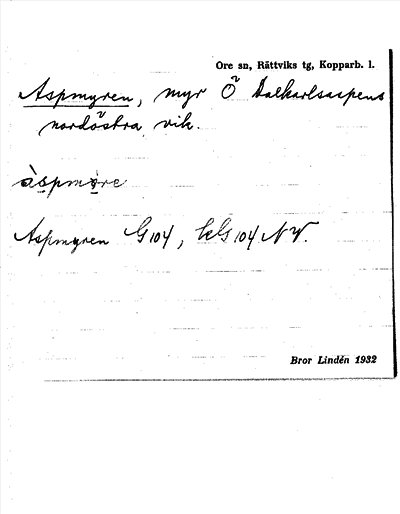 Ore sn, Rättviks tg, Kopparb. l.
Aspmyren, myr Ö Dalkarlsaspens
nordöstra vik.
àspmøre
Aspmyren G 104, EG 104 NV.
Bror Lindén 1932